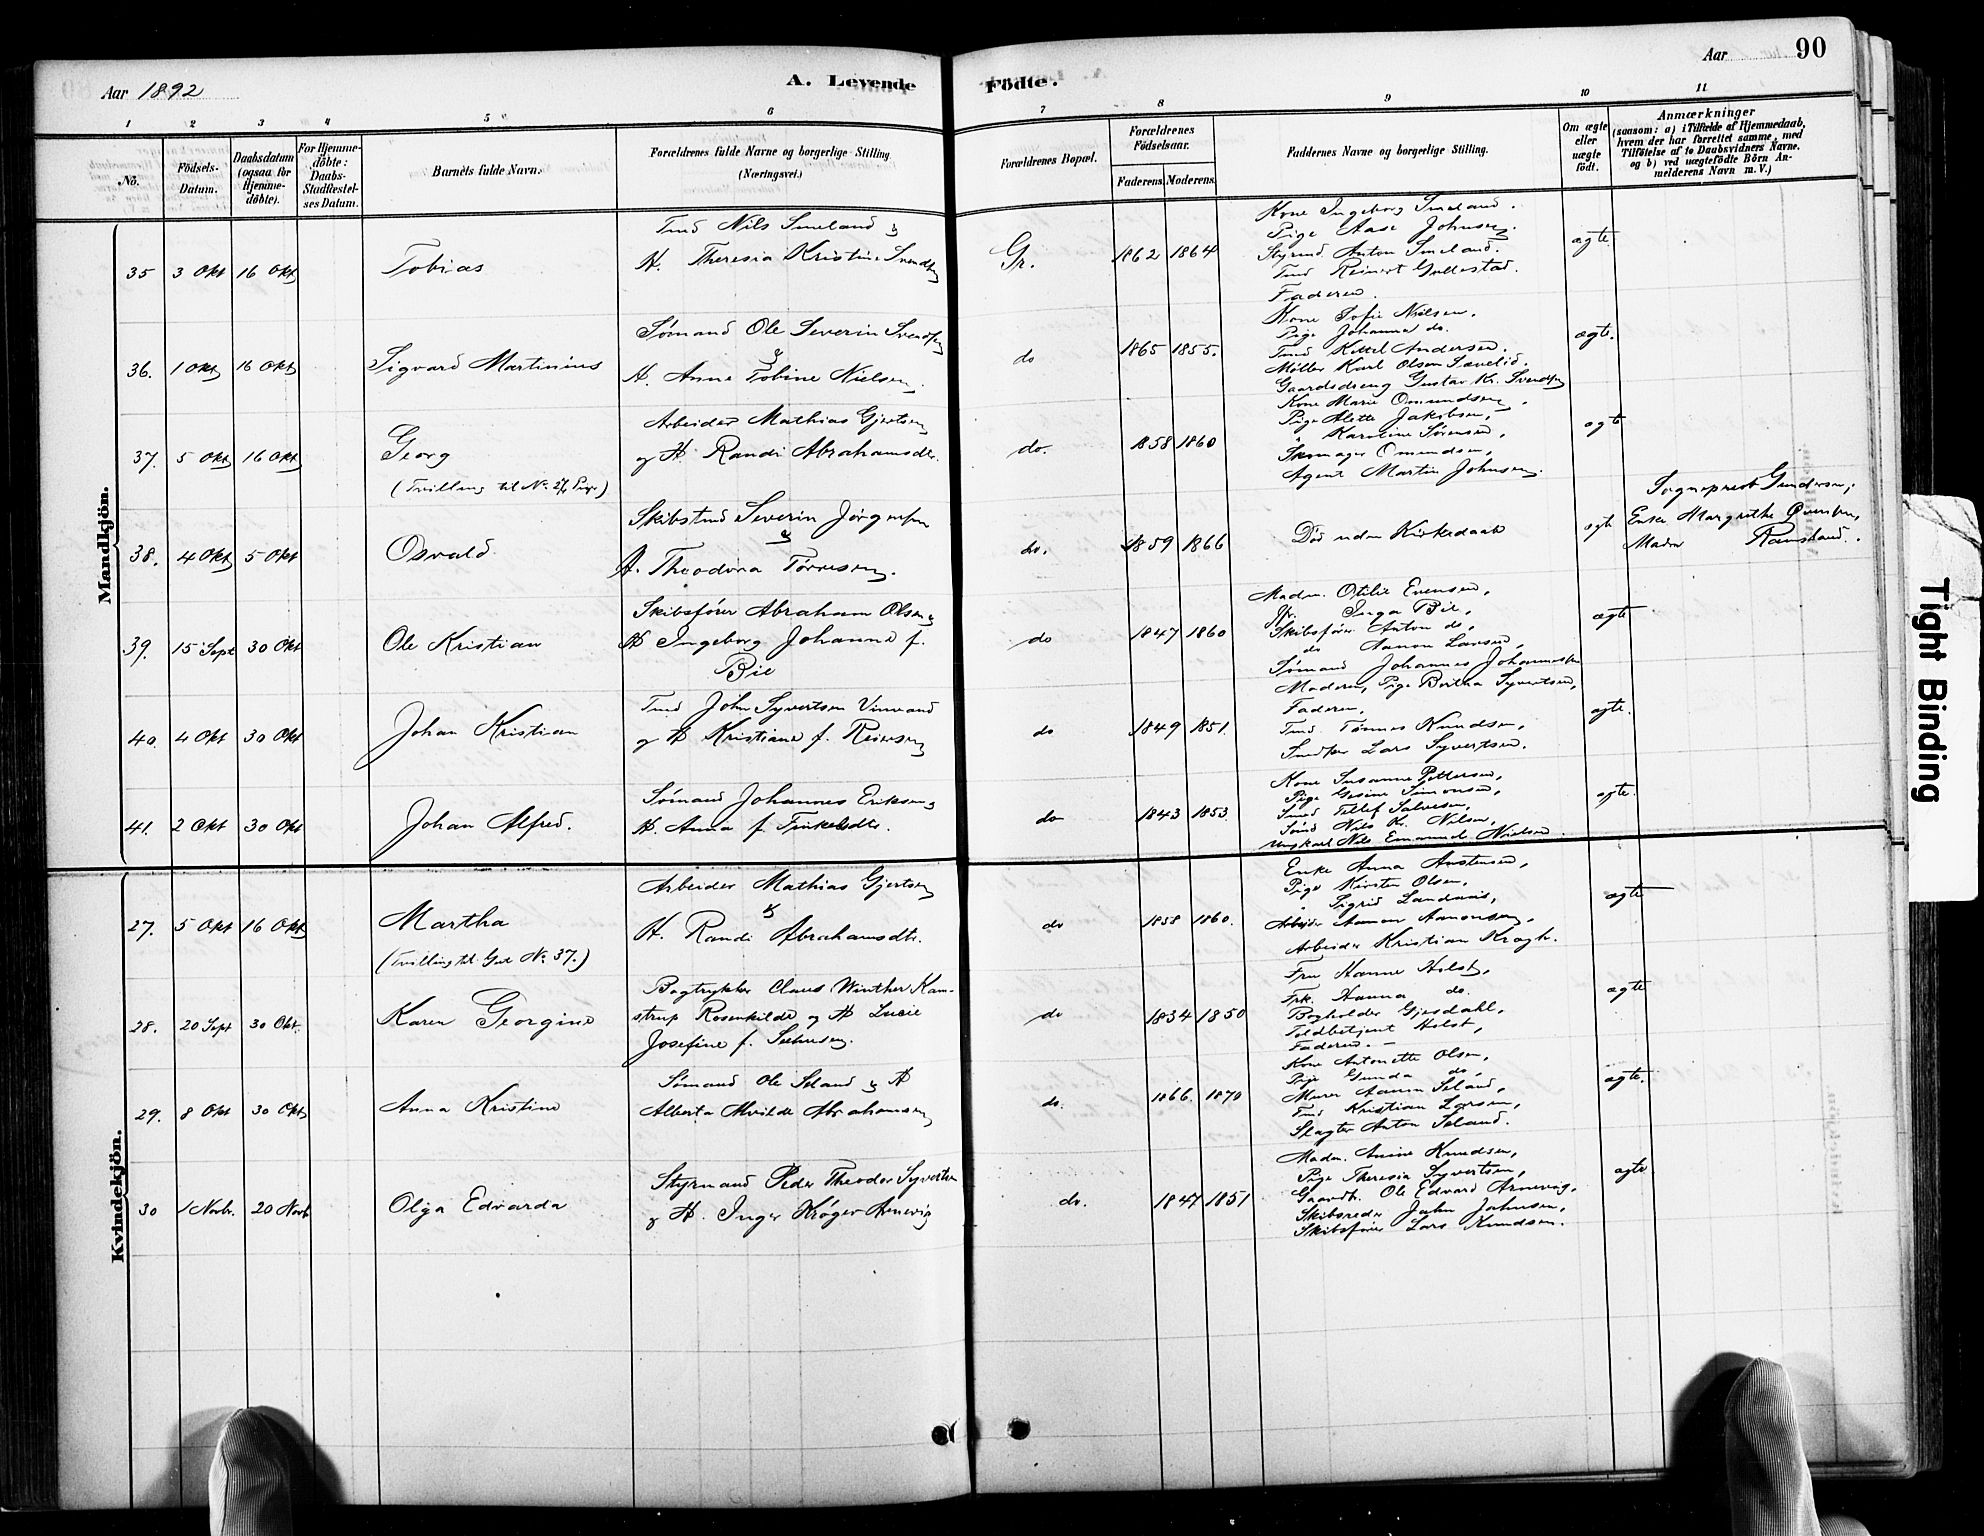 Aar 1892
A. Levende
Födte.
Aar
90
1 2 3 4 5 6 7 8 9 10 11
No.
Födsels-Datum.
Daabsdatum (ogsaa for Hjemmedöbte).
For Hjemmedöbte: Daabs-Stadfæstelses Datum.
Barnets fulde Navn.
Forældrenes fulde Navne og borgerlige Stilling (Næringsvei.)
Forældrenes Bopæl.
Forældrenes Födselsaar.
Faderens. Moderens.
Faddernes Navne og borgerlige Stilling.
Om ægte eller uægte födt.
Anmærkninger
(saasom: a) i Tilfælde af Hjemmedaab, hvem der har forrettet samme, med Tilföielse af to Daabsvidners Navne. og b) ved uægtefödte Börn Anmelderens Navn m. V.)
Mandkjön.
35 3 Okt 16 Okt
Tobias
Tmd Nils Smeland &
H. Theresia Kristine Svendsen
Gr.
1862 1864
Kone Ingeborg Smeland.
Pige Aase Johnsen.
Styrmd. Anton Smeland.
Tmd Reinert Gullestad.
Faderen.
ægte
36. 1 Okt 16 Okt
Sigvard Martinius
Sømand Ole Severin Svendsen
&
H. Anne Tobine Nielsen.
do
1865 1855.
Kone Sofie Nielsen.
Pige Johanna do.
Tmd Kittel Andersen.
Møller Karl Olsen
Gaardsdreng Gustav Kr. Svendsen
ægte.
37. 5 Okt 16 Okt
Georg
(Tvilling til No. 27 Pige)
Arbeider Mathias Gjertsen
og H Randi Abrahamsdtr.
do.
1858 1860
Kone Marie Omundsen,
Pige Alette Jakobsen,
" Karoline Sørensen,
Skomager Omundsen,
Agent Martin Johnsen.
ægte
38. 4 Okt 5 Okt
Osvald
Skibstmd Severin Jørgensen
&
H. Theodora Tørresen.
do.
1859 1866
Död uden Kirkedaab
ægte
Sogneprest Gundersen;
Enke Margrethe Evensen,
Madm Ramsland.
39. 15 Sept 30 Okt
Ole Kristian
Skibsfører Abraham Olsen &
H Ingeborg Johanne f.
Bie
do
1847 1860
Madm. Otilie Evensen,
Fr. Inga Bie,
Skibsfører Anton do,
do Aanon Larsen,
Sømand Johannes Johannessen
ægte
40. 4 Okt 30 Okt
Johan Kristian
Tmd John Syvertsen Vinvand
og H Kristiane f. Reiersen
do
1849 1851.
Moderen, Pige Bertha Syvertsen,
Faderen,
Tmd. Tønnes Knudsen,
Lars Syvertsen.
ægte.
41. 2 Okt 30 Okt
Johan Alfred.
Sømand Johannes Eriksen &
H. Anna f. Tinkelsdtr.
do
1843 1853.
Kone Susanne Pettersen,
Pige Gesine Simonsen,
Smed Tellef Salvesen,
Sømd Nils Kr. Nilsen,
Ungkarl Nils Emanuel Nielsen.
ægte.
Kvindekjön.
27. 5 Okt 16 Okt
Martha
(Tvilling til Gut No. 37.)
Arbeider Mathias Gjertsen
&
H. Randi Abrahamsdtr.
do
1858 1860.
Enke Anna Austensen,
Pige Kirsten Olsen,
" Sigrid Landaas,
Arbeider Aanon Aanonsen,
Arbeider Kristian Krogh.
ægte
28. 20 Sept 30 Okt.
Karen Georgine
Bogtrykker Claus Winther Kam-
strup Rosenkilde og H Lucie
Josefine f. Seehusen.
do
1834 1850
Fru Hanne Holst,
Frk. Hanna do.
Bogholder Gjesdahl,
Toldbetjent Holst,
Faderen. –
ægte
29. 8 Okt 30 Okt
Anna Kristine
Sømand Ole Seland & H
Alberta Alvilde Abrahamsen
do.
1866. 1870
Kone Antonette Olsen,
Pige Gunda do,
Murer Aanon Seland,
Tmd Kristian Larsen,
Slagter Anton Seland.
ægte.
30 1 Novbr. 20 Novb
Olga Edvarda
Styrmand Peder Theodor Syvertsen
& H. Inger Krøger Arnevig
do.
1847 1851
Madm. Anine Knudsen,
Pige Theresia Syvertsen,
Gaardb. Ole Edvard Arnevig,
Skibsreder John Johnsen,
Skibsfører Lars Knudsen.
ægte
Tight Binding